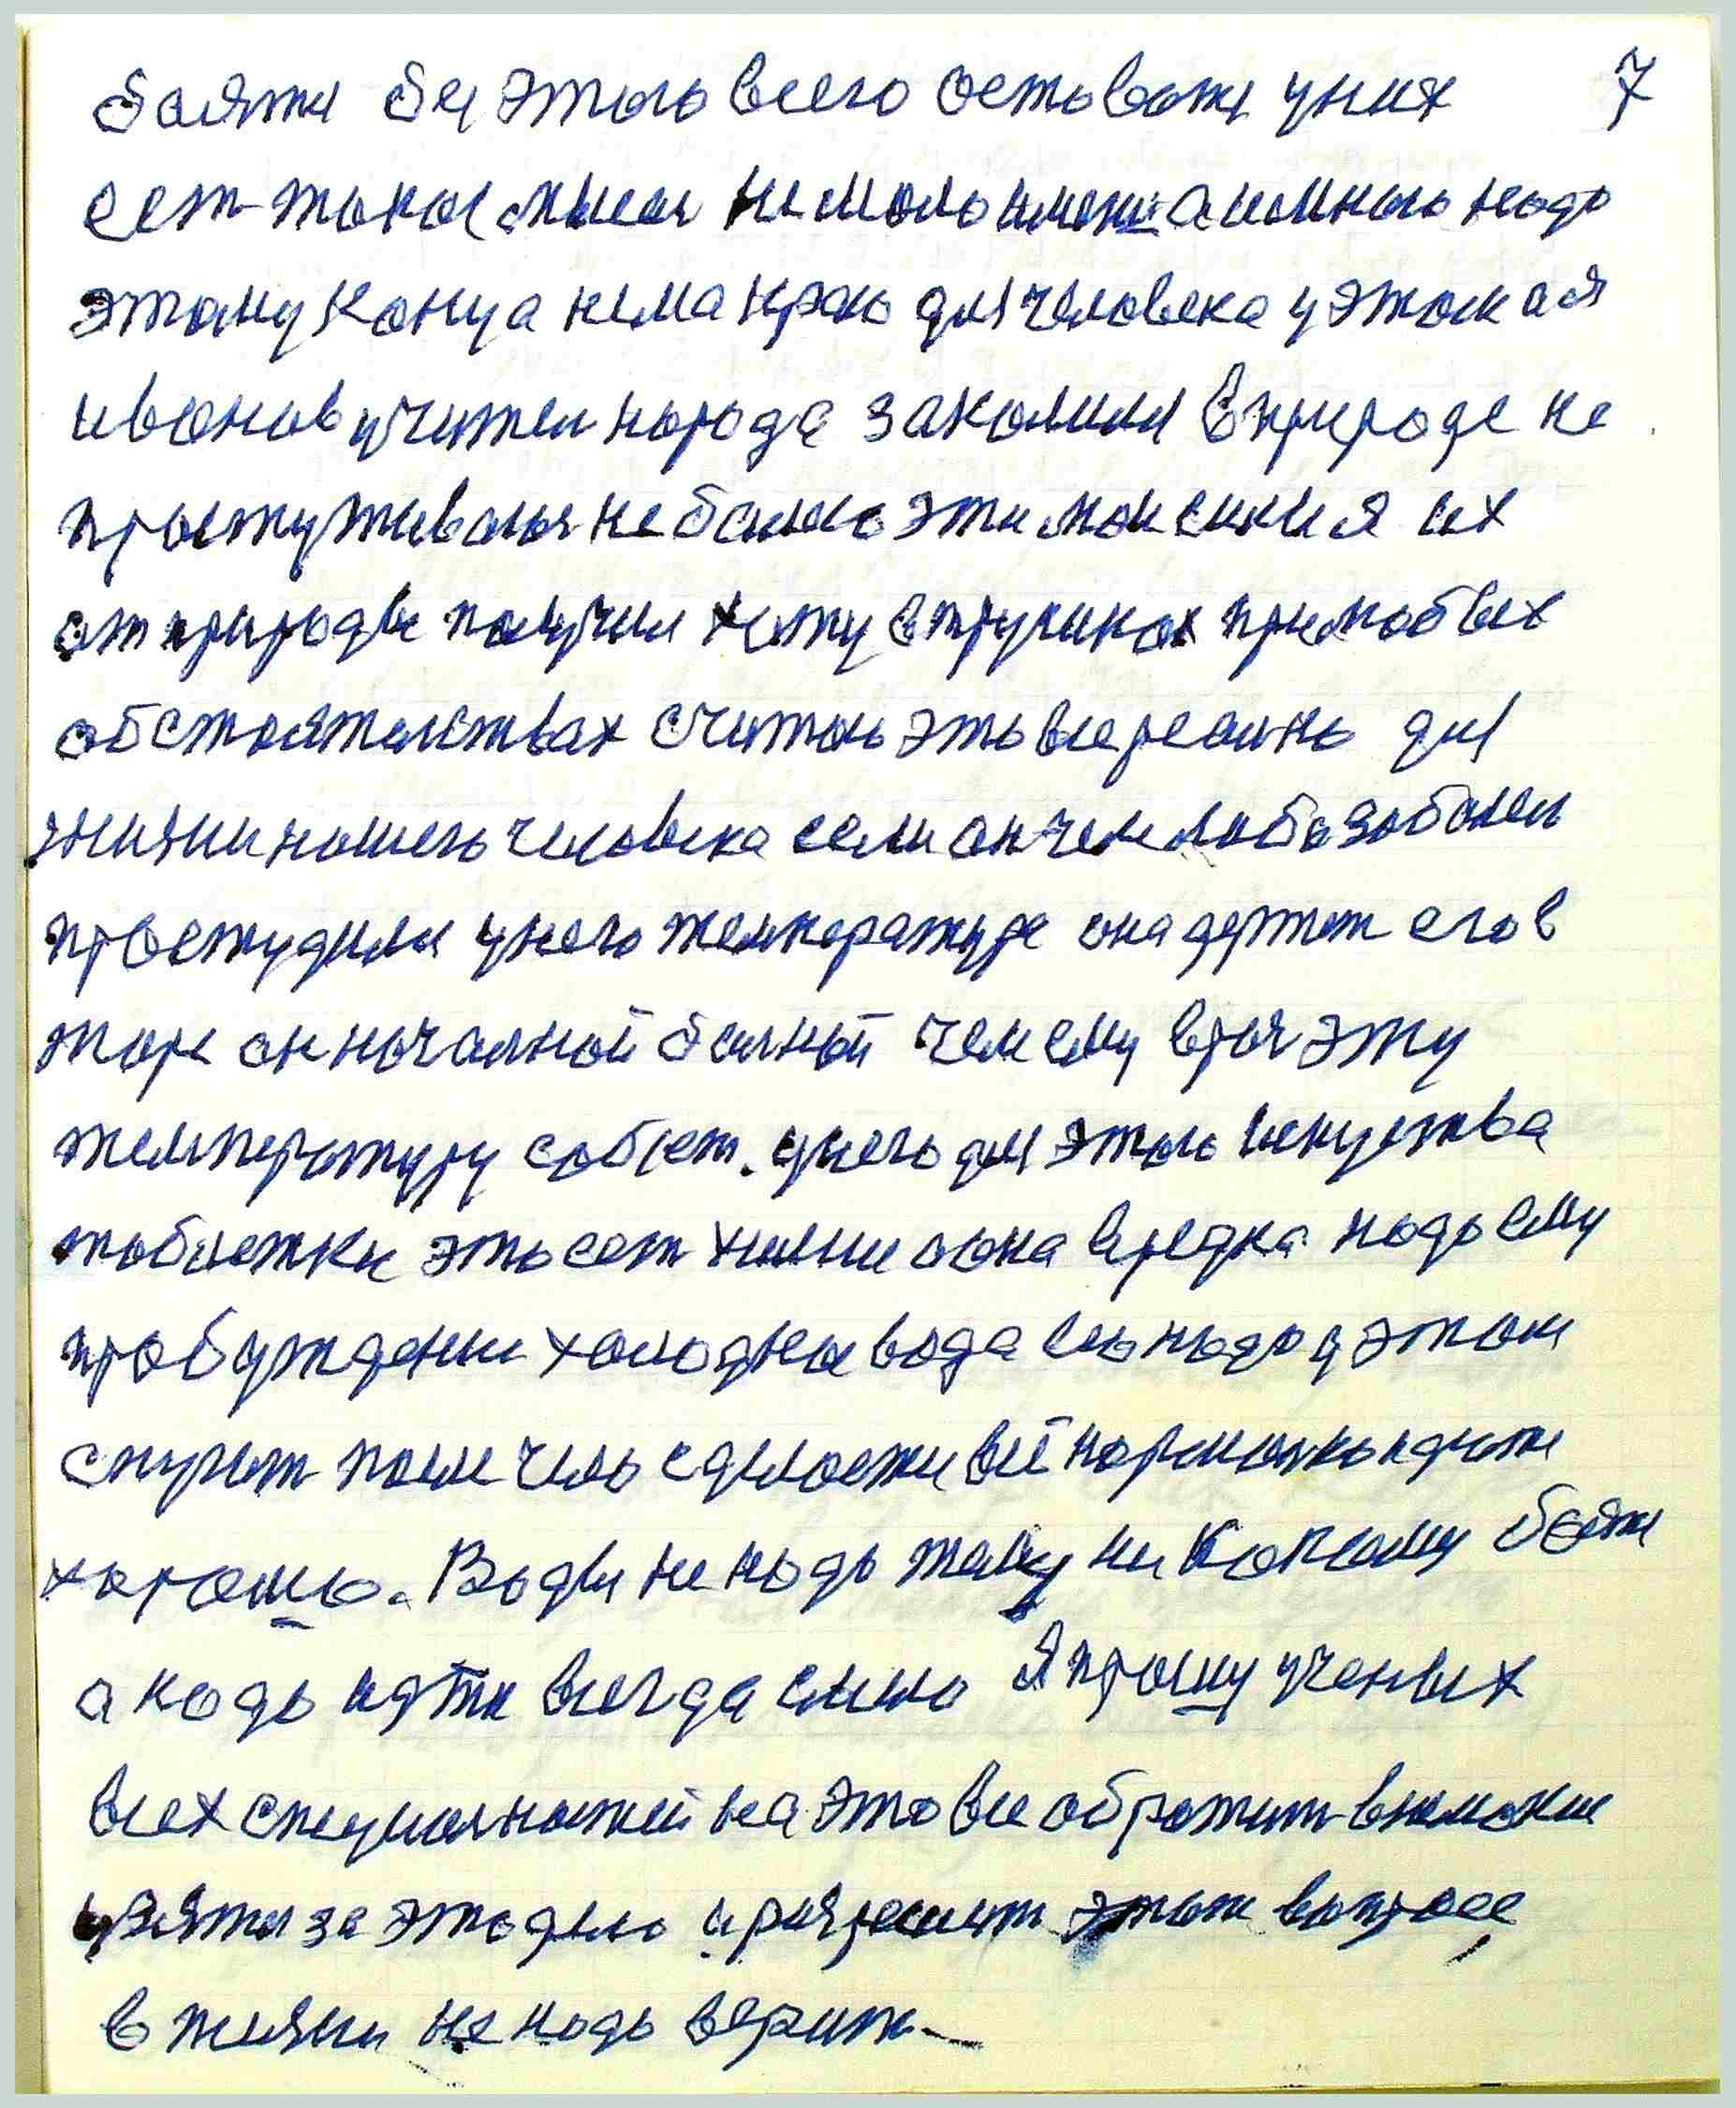 боятся бы этого всего оставатя у них 7
ест такая мысля немало имени а именно надо
этому конца нема краю для человека у этом а я
иванов учител народа закалился в природе не
простуживался не болею эти мои силы я их
от природы получил хожу в трусиках при любых
обстоятельствах считаю это все реально для
жизни нашего человека если он чем либо заболел
простудился у него температура она держит его в
жаре он начальной больный чем ему врач эту
температуру собьет. у него для этого искуства
таблетки это ест химия она вредна надо ему
пробуждении холодная вода его надо у этом
скупат после чего сделается всё нормально идти
хорошо. Воды не надо тому никакому боятя
а надо идти всегда смело Я прошу ученых
всех специальностей на это все обратит внимание
взятся за это дело и разрешит этот вопрос
в жизни не надо верит